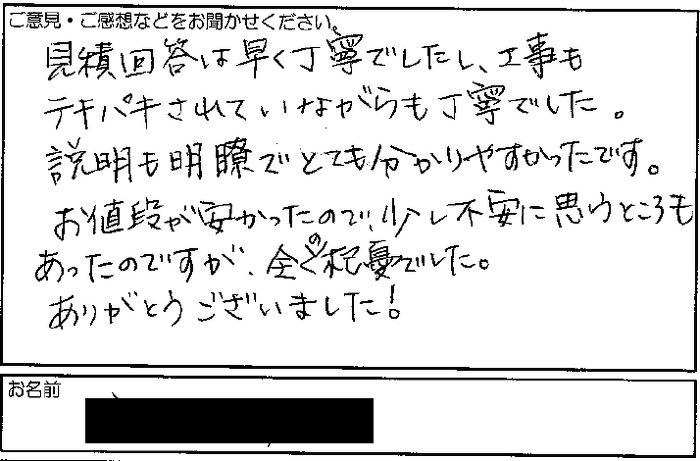 ご意見・ご感想などをお聞かせください。
見積回答は早く丁寧でしたし、工事も
テキパキされていながらも丁寧でした。
説明も明瞭でとても分かりやすかったです。
お値段が安かったので、少し不安に思うところも
あったのですが、全くの杞憂でした。
ありがとうございました!
お名前